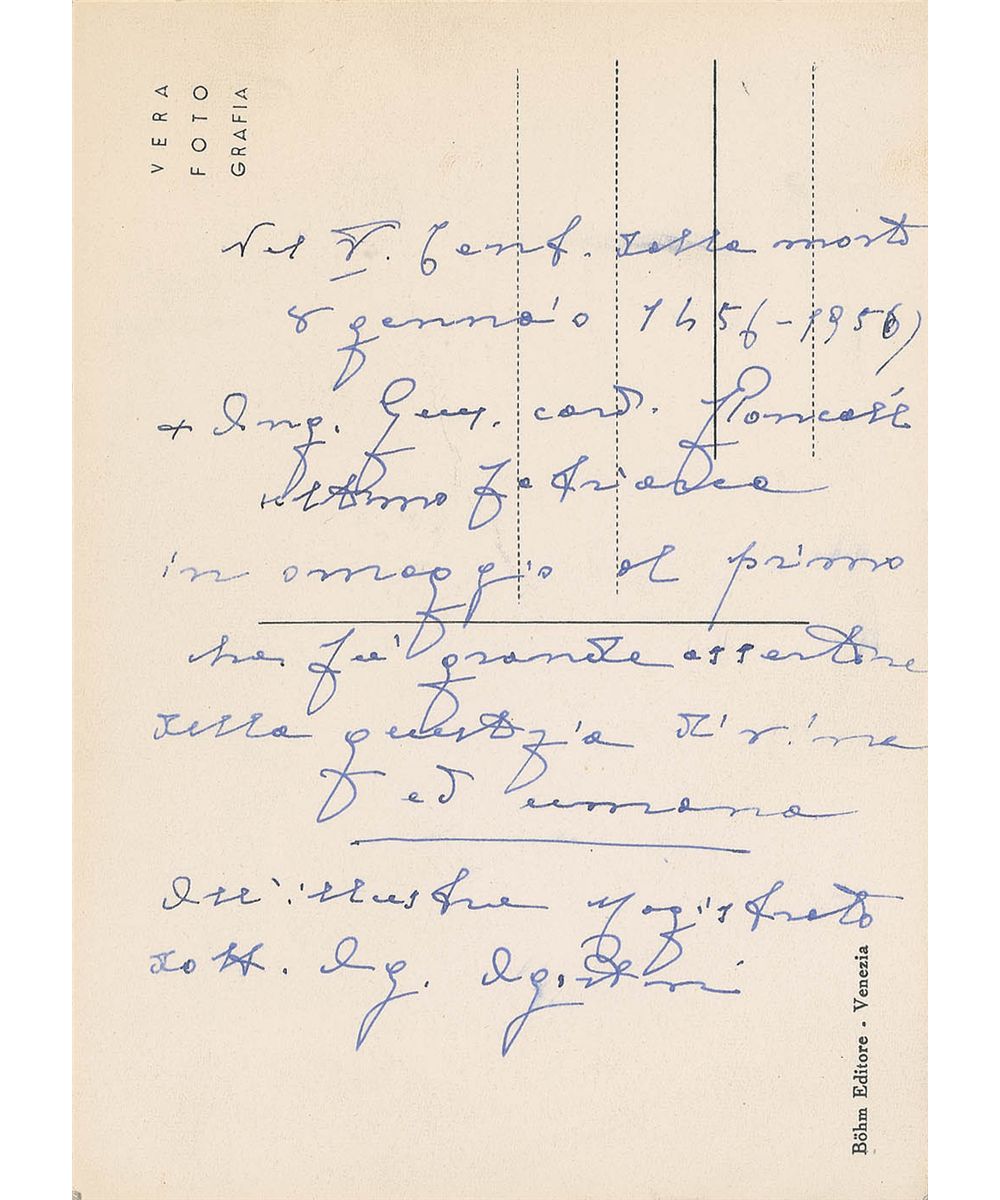 VERA
FOTO
GRAFIA
Nel V. Cent. della morte
8 gennaio 1456-1956)
+ Ang. Gius. card. Roncalli
ultimo Patriarca
in omaggio al primo
che fu grande assertore
della giustizia divina
ed umana
All'illustre Magistrato
dott. Ag. Agostini
Böhm Editore - Venezia